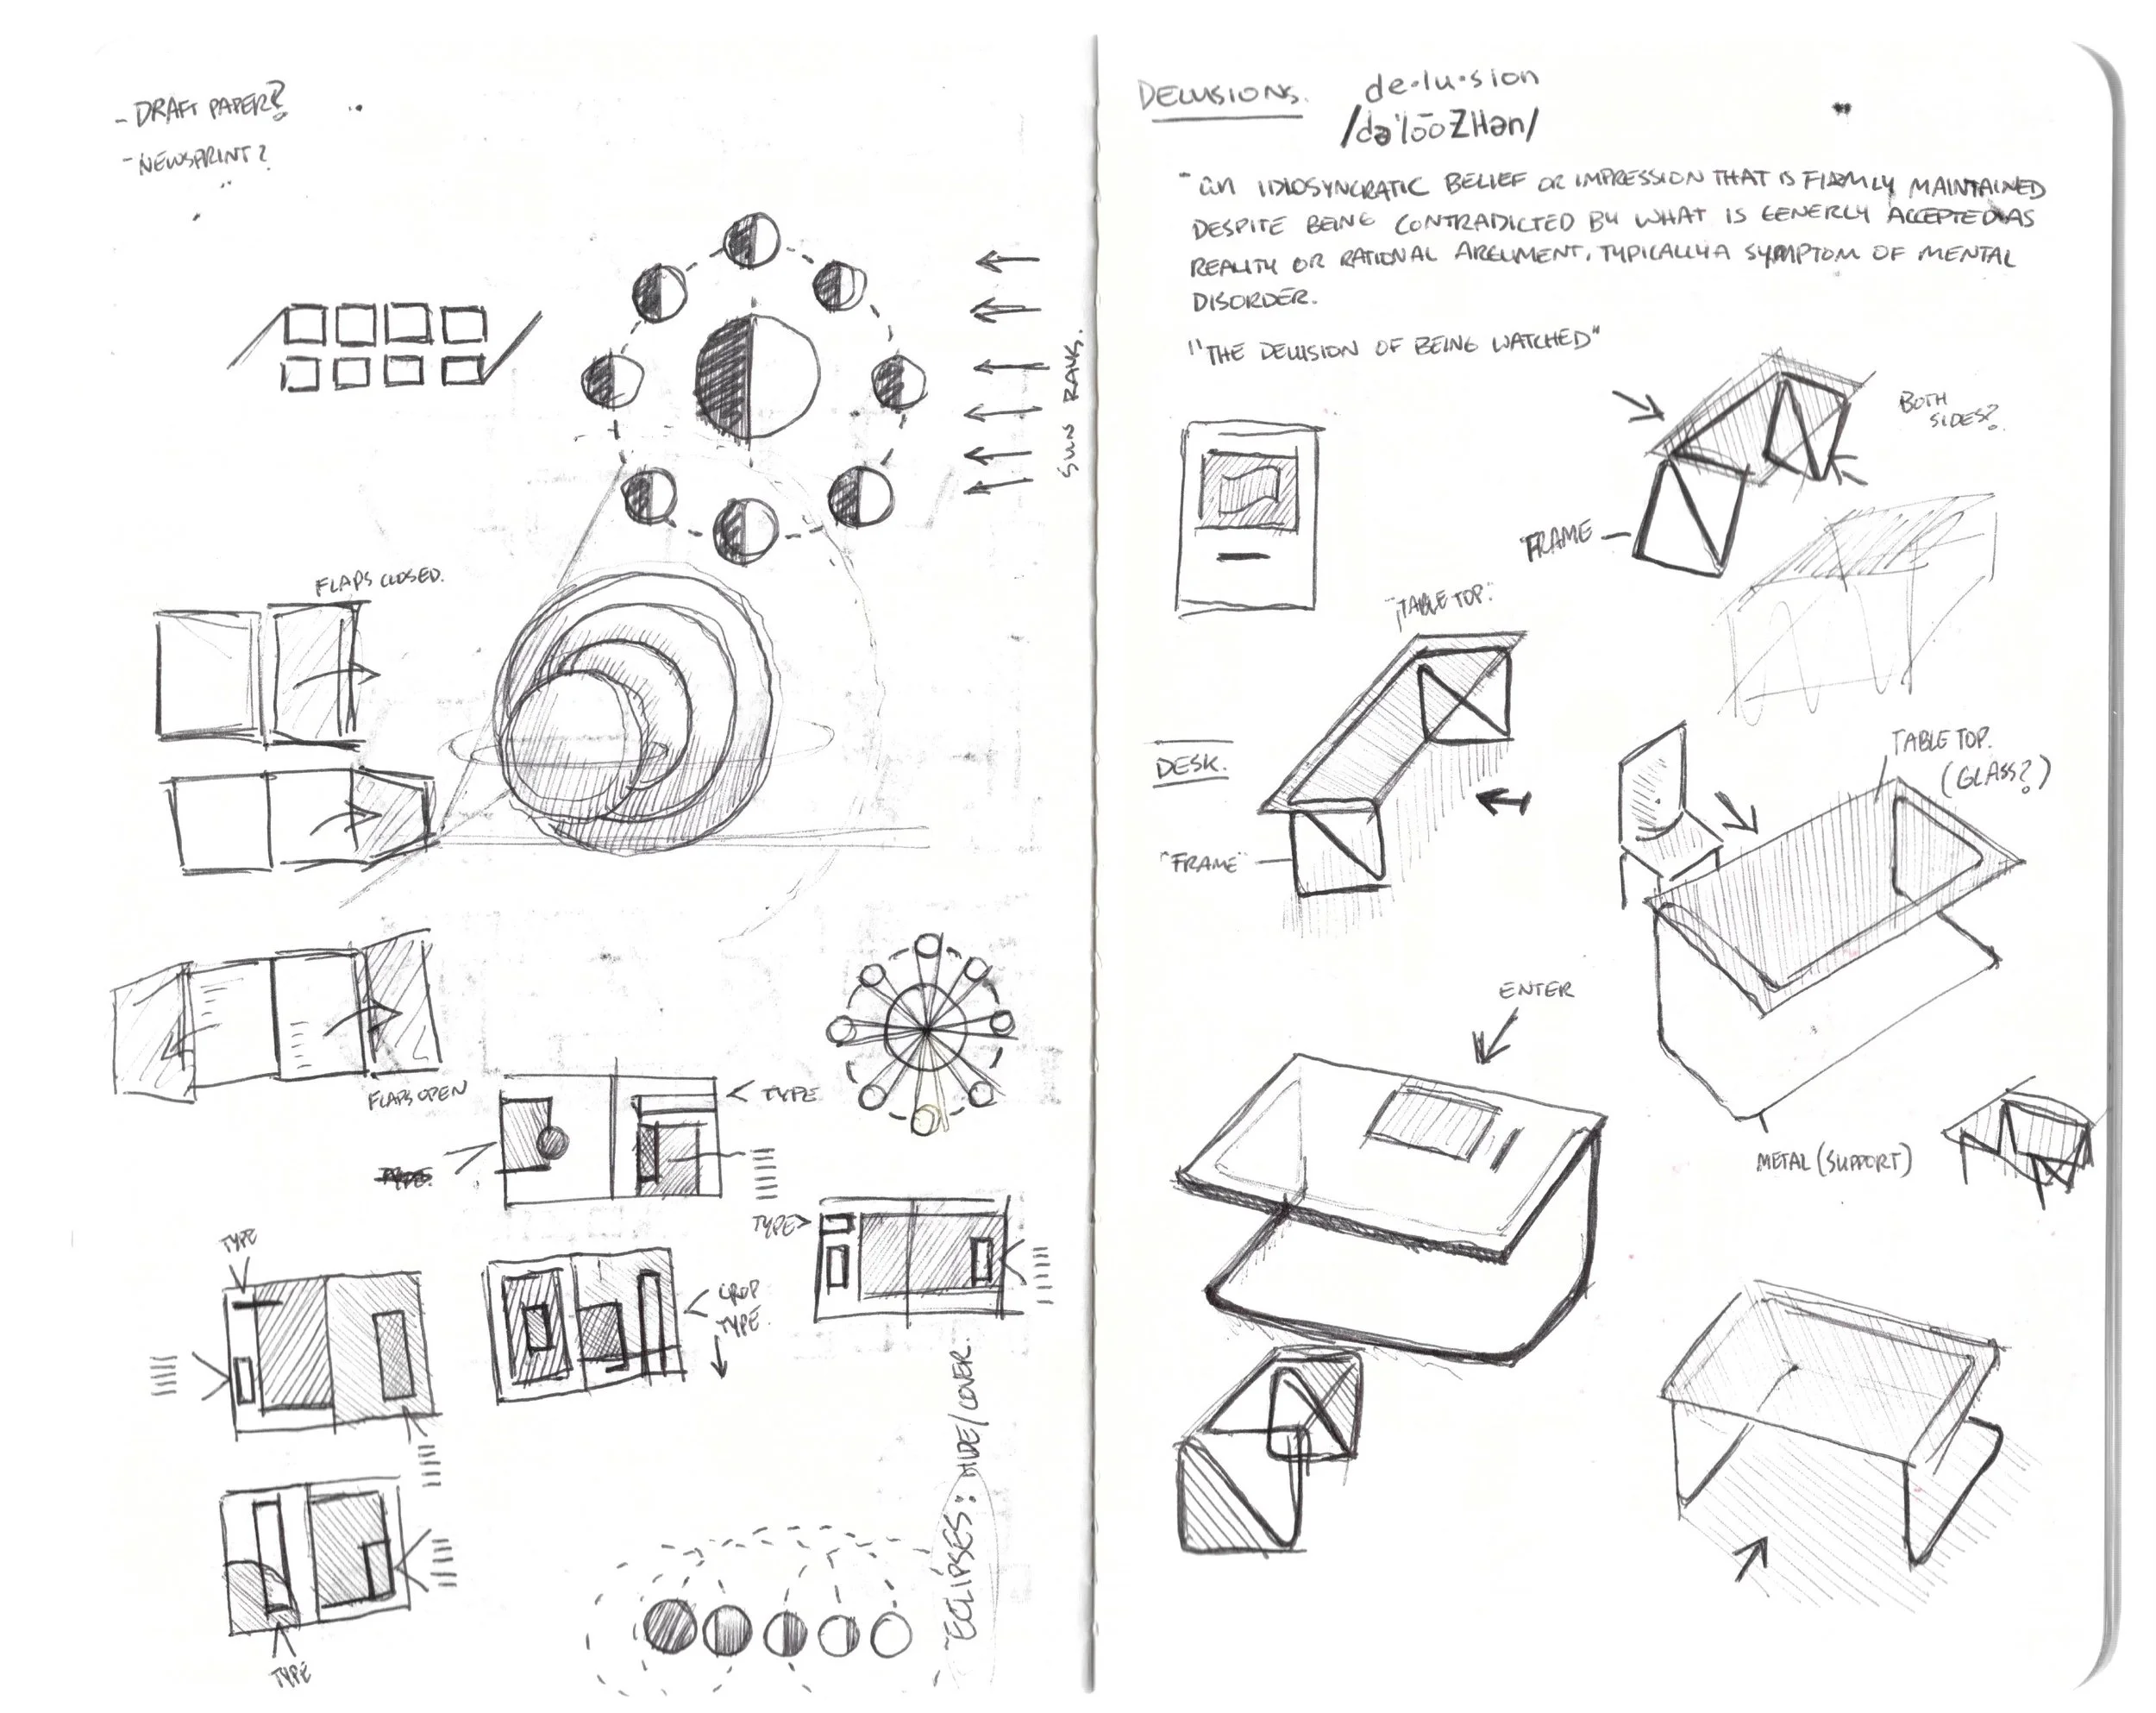 - DRAFT PAPER?
- NEWSPRINT?
SUN RAYS.
FLAPS CLOSED.
FLAPS OPEN
< TYPE
TYPE.
TYPE>
TYPE
CROP
TYPE.
TYPE
ECLIPSES: HIDE/COVER.
DELUSIONS.
de·lu·sion
/də'lo͞oZHən/
- an IDIOSYNCRATIC BELIEF OR IMPRESSION THAT IS FIRMLY MAINTAINED
DESPITE BEING CONTRADICTED BY WHAT IS GENERLY ACCEPTED AS
REALITY OR RATIONAL ARGUMENT, TYPICALLY A SYMPTOM OF MENTAL
DISORDER.
"THE DELUSION OF BEING WATCHED"
BOTH
SIDES?
FRAME
"TABLE TOP."
DESK.
"FRAME"
TABLE TOP.
(GLASS?)
ENTER
METAL (SUPPORT)